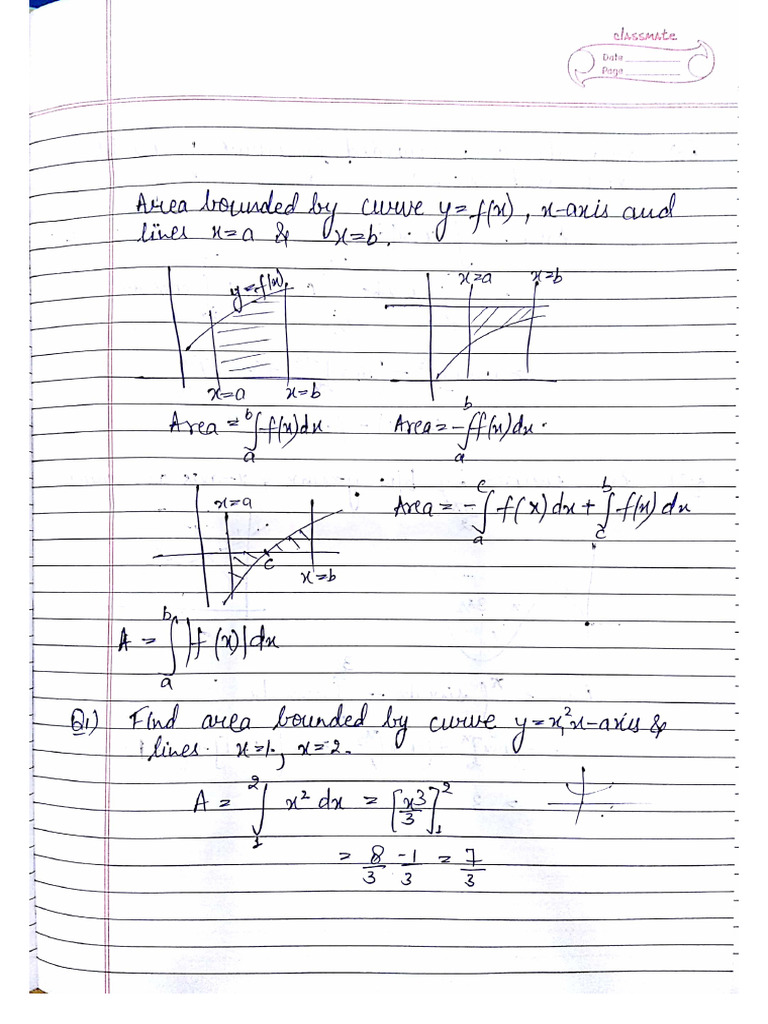 classmate
Date
Page
Area bounded by curve y=f(x), x-axis and
lines x=a & x=b.
y=f(x)
x=a x=b
x=a x=b
Area = ∫_a^b f(x)dx
Area = -∫_a^b f(x)dx.
x=a
c
x=b
Area = -∫_a^c f(x)dx + ∫_c^b f(x)dx
A = ∫_a^b |f(x)|dx
Q1) Find area bounded by curve y=x², x-axis &
lines. x=1, x=2.
A = ∫_1^2 x² dx = [x³/3]_1^2
= 8/3 - 1/3 = 7/3